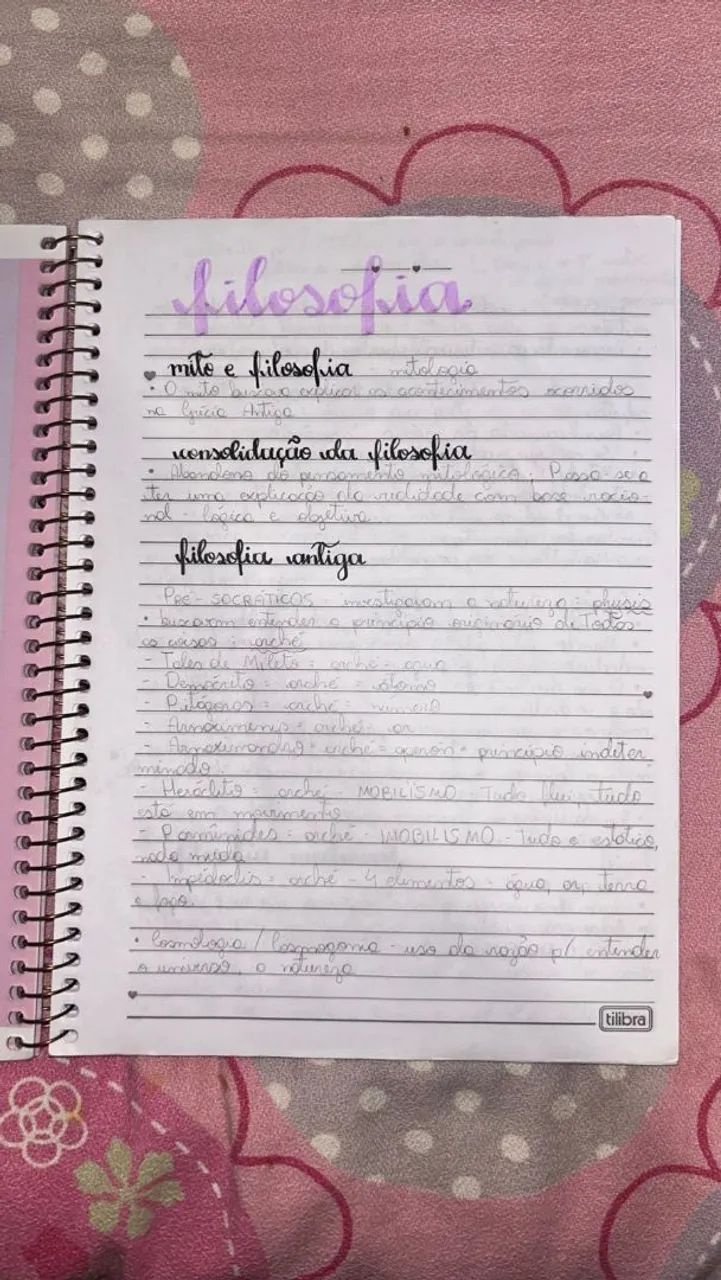 filosofia
mito e filosofia - mitologia
• O mito buscava explicar os acontecimentos ocorridos
na Grécia Antiga
consolidação da filosofia
• Abandono do pensamento mitológico; Passa-se a
ter uma explicação da realidade com base racio-
nal - lógica e objetiva
filosofia antiga
PRÉ-SOCRÁTICOS - investigavam a natureza = physis
• buscavam entender o princípio originário de Todas
as coisas = arché
- Tales de Mileto = arché = água
- Demócrito = arché = átomo
- Pitágoras = arché = número
- Anaxímenes = arché = ar
- Anaximandro = arché = ápeiron = princípio indeter
minado.
- Heráclito = arché - MOBILISMO - Tudo flui, tudo
está em movimento
- Parmênides = arché - IMOBILISMO - Tudo é estático,
nada muda
- Empédocles = arché - 4 elementos = água, ar, terra
e fogo.
• Cosmologia / - uso da razão p/ entender
o universo, a natureza
tilibra